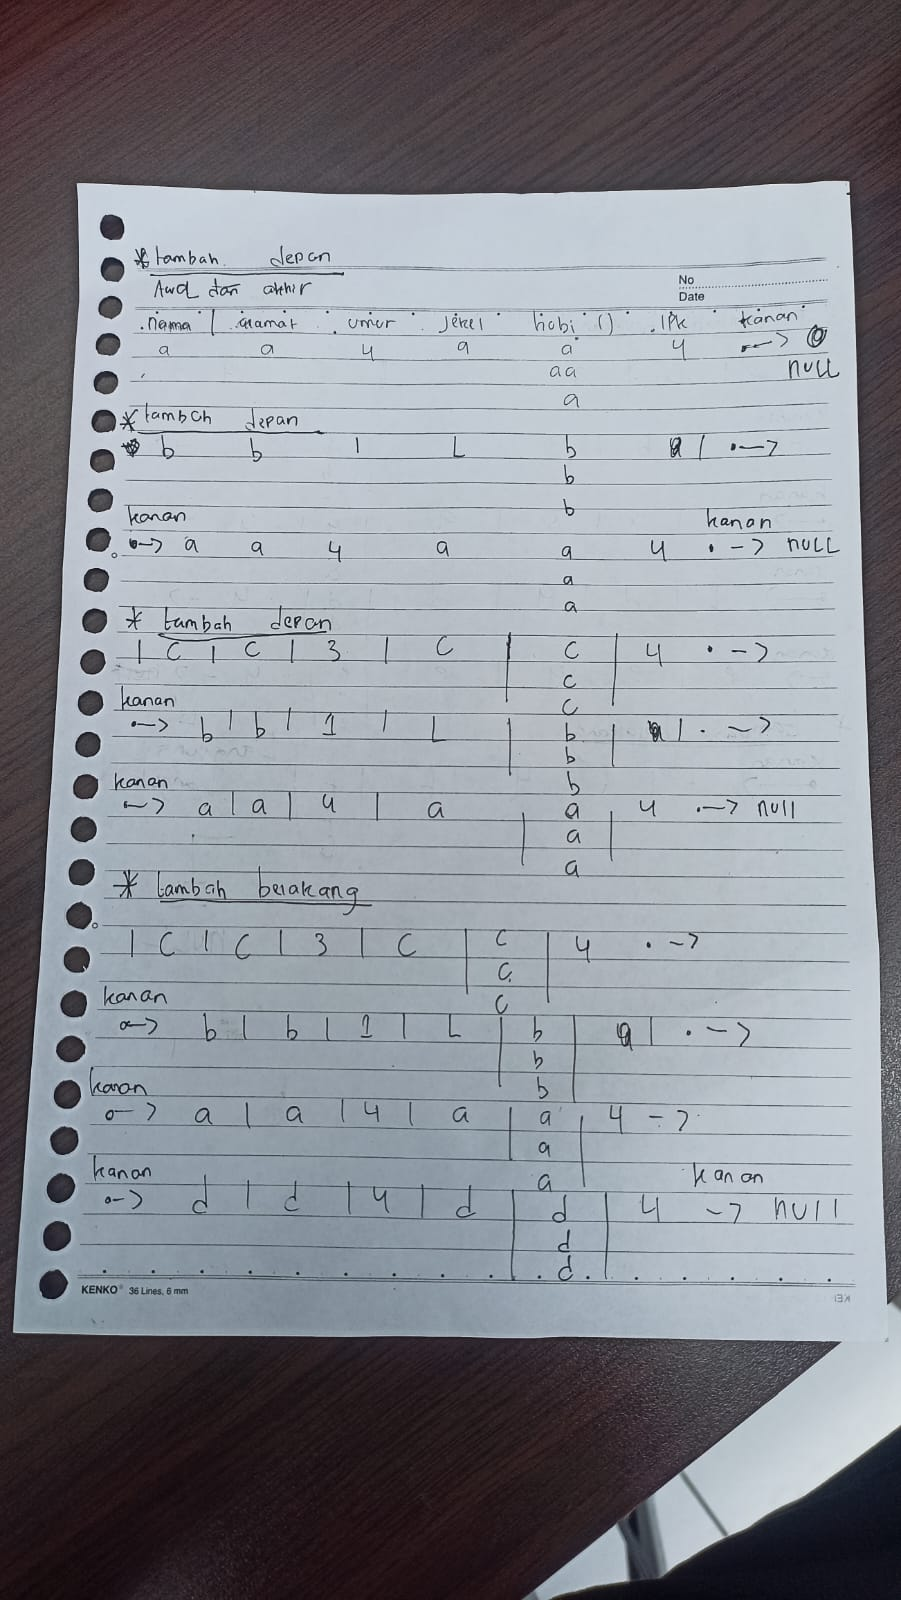 * tambah depan
Awal dan akhir
No
Date
nama | alamat umur jekel hobi () IPK kanan
a a 4 a a 4 •-->
aa null
a
* tambah depan
b b 1 L b | •-->
b
kanan b kanan
•--> a a 4 a a 4 •--> null
a
* tambah depan a
| C | C | 3 | C | C | 4 •-->
C
kanan C
•--> b | b | 1 | L | b | | •-->
b
kanan b
•--> a | a | 4 | a a 4 •--> null
| a |
a
* tambah belakang
| C | C | 3 | C | C | 4 •-->
C
kanan C
•--> b | b | 1 | L | b | | •-->
b
kanan b
•--> a | a | 4 | a | a | 4 -->
a
kanan a kanan
•--> d | d | 4 | d | d | 4 --> null
d
d
KENKO® 36 Lines, 6 mm